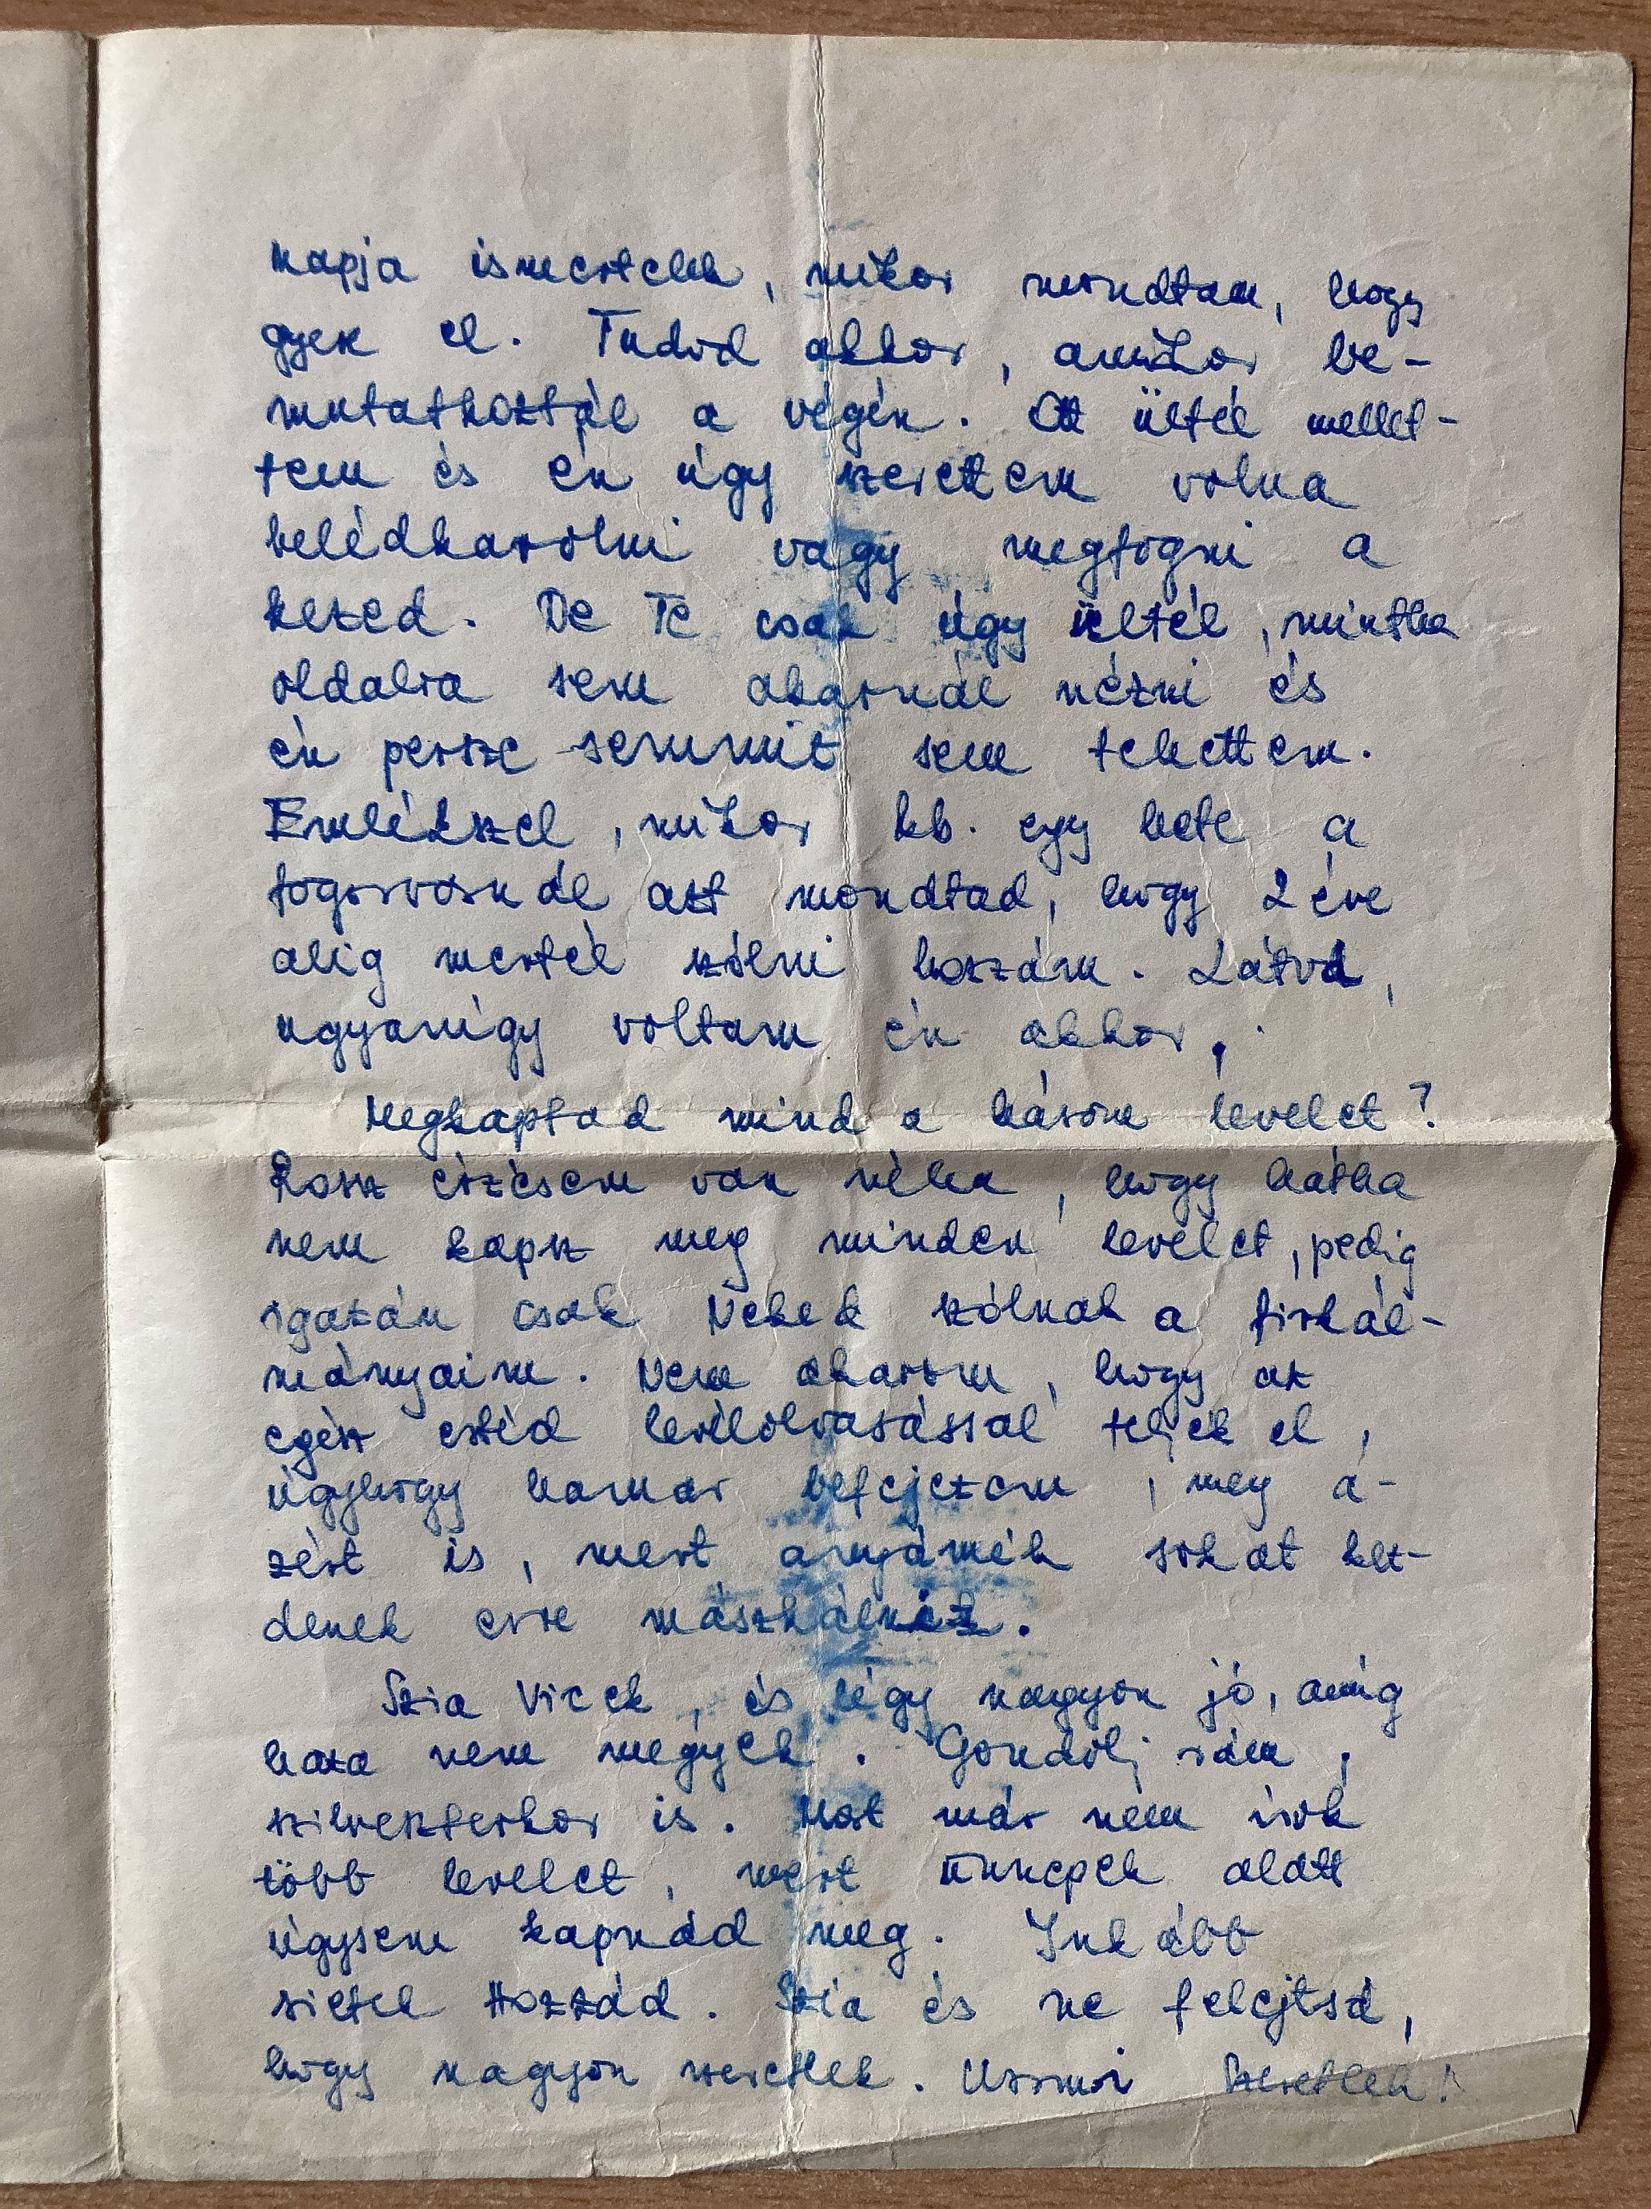 napja ismertelek, mikor mondtam, hogy
gyere el. Tudod akkor, amikor be-
mutatkoztál a végén. Ott ültél mellet-
tem és én úgy szerettem volna
belédkarolni vagy megfogni a
kezed. De Te csak úgy ültél, mintha
oldalra sem akarnál nézni és
én persze semmit sem tehettem.
Emlékszel, mikor kb. egy hete a
fogorvosnál azt mondtad, hogy 2 éve
alig mertél szólni hozzám. Látod,
ugyanígy voltam én akkor.
Megkaptad mind a három levelet?
Rossz érzésem van néha, hogy hátha
nem kapsz meg minden levelet, pedig
igazán csak Neked szólnak a firkál-
mányaim. Nem akarom, hogy az
egész estéd levélolvasással teljék el,
úgyhogy hamar befejezem, meg a-
zért is, mert anyámék sokat kez-
denek erre mászkálni.
Szia Vicek, és légy nagyon jó, amíg
haza nem megyek. Gondolj rám,
szilveszterkor is. Most már nem írok
több levelet, mert ünnepek alatt
úgysem kapnád meg. Inkább
sietek Hozzád. Szia és ne felejtsd,
hogy nagyon szeretlek. Szeretlek!